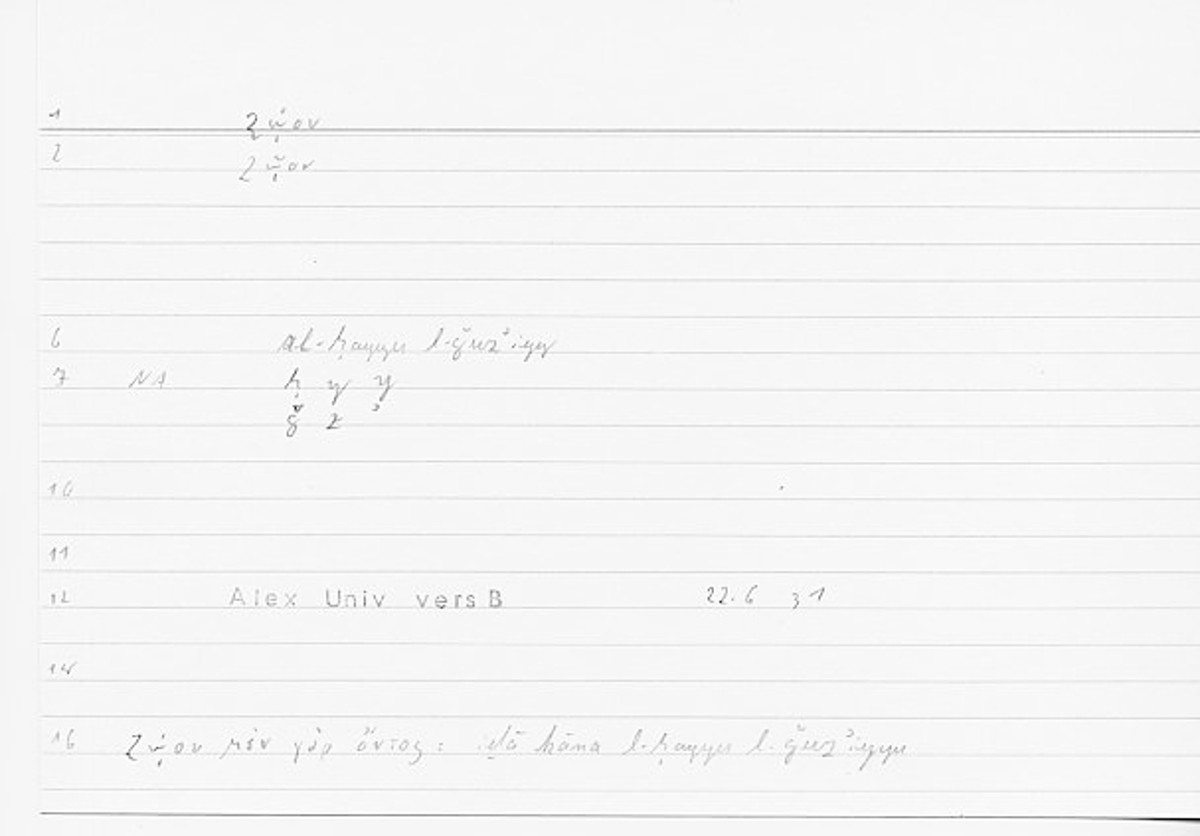 1 ζῷον
2 ζῷον
6 al-ḥayyu l-ǧuzʾiyy
7 NA ḥ y y
ǧ z ʾ
10
11
12 Alex Univ vers B 22.6 31
14
16 ζῴου μὲν γὰρ ὄντος: iḏā kāna l-ḥayyu l-ǧuzʾiyyu